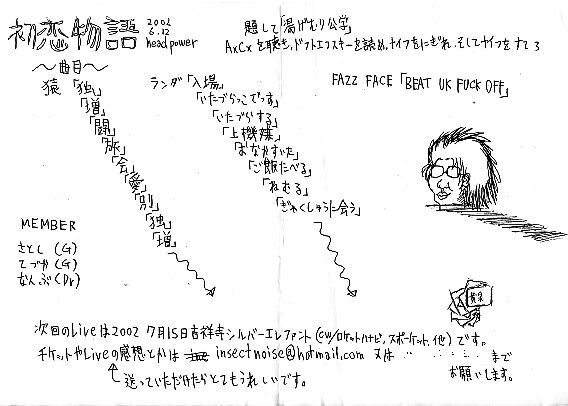 初恋物語
2002
6.12
head power
題して「湯げむり公学」
AxCxを聴き、ドフトエフスキーを読め。ナイフをにぎれ、そしてナイフをすてろ
〜曲目〜
猿 「独」
「増」
「闘」
「旅」
「会」
「愛」
「別」
「独」
「増」
ランダ「入場」
「いたづらっこでっす」
「いたづらする」
「上機嫌」
「おなかすいた」
「ご飯たべる」
「ねむる」
「ぎゃくしゅうに会う」
FAZZ FACE 「BEAT UK FUCK OFF」
MEMBER
さとし (G)
てづか (G)
なんぶ (Dr)
次回のLiveは2002 7月15日吉祥寺シルバーエレファント (cw/ロケットハナビ, スポーケット, 他) です。
チケットやLiveの感想とかは insectnoise@hotmail.com 又は まで
お願いします。
送っていただけたらとてもうれしいです。